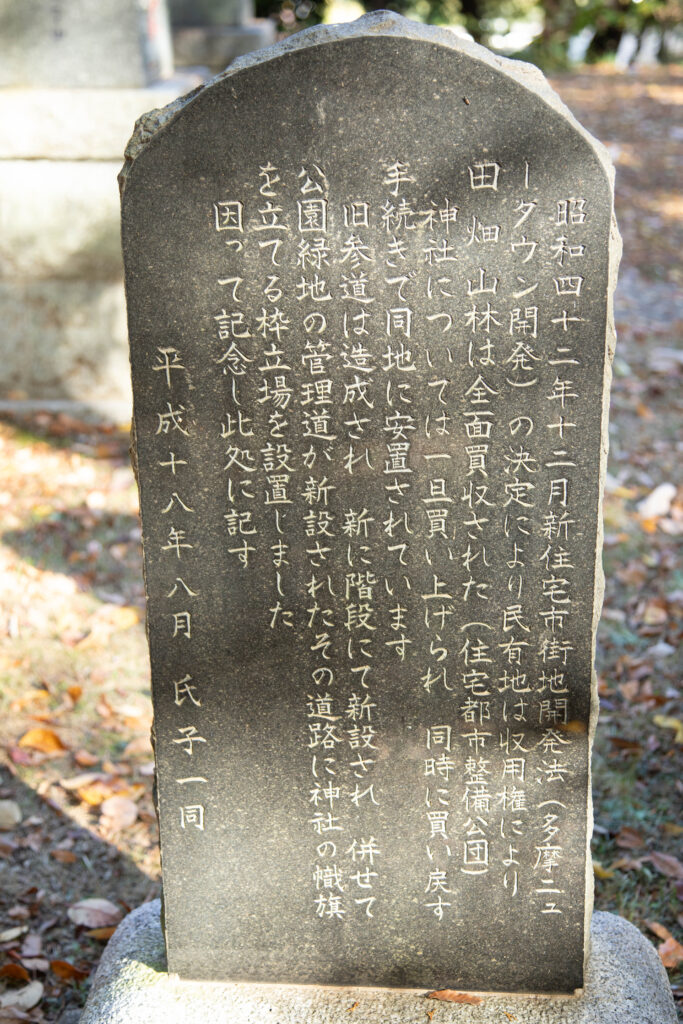 昭和四十二年十二月新住宅市街地開発法（多摩ニュ
ータウン開発）の決定により民有地は収用権により
田　畑　山林は全面買収された（住宅都市整備公団）
神社については一旦買い上げられ　同時に買い戻す
手続きで同地に安置されています
旧参道は造成され　新に階段にて新設され　併せて
公園緑地の管理道が新設されたその道路に神社の幟旗
を立てる枠立場を設置しました
因って記念し此処に記す
平成十八年八月　氏子一同